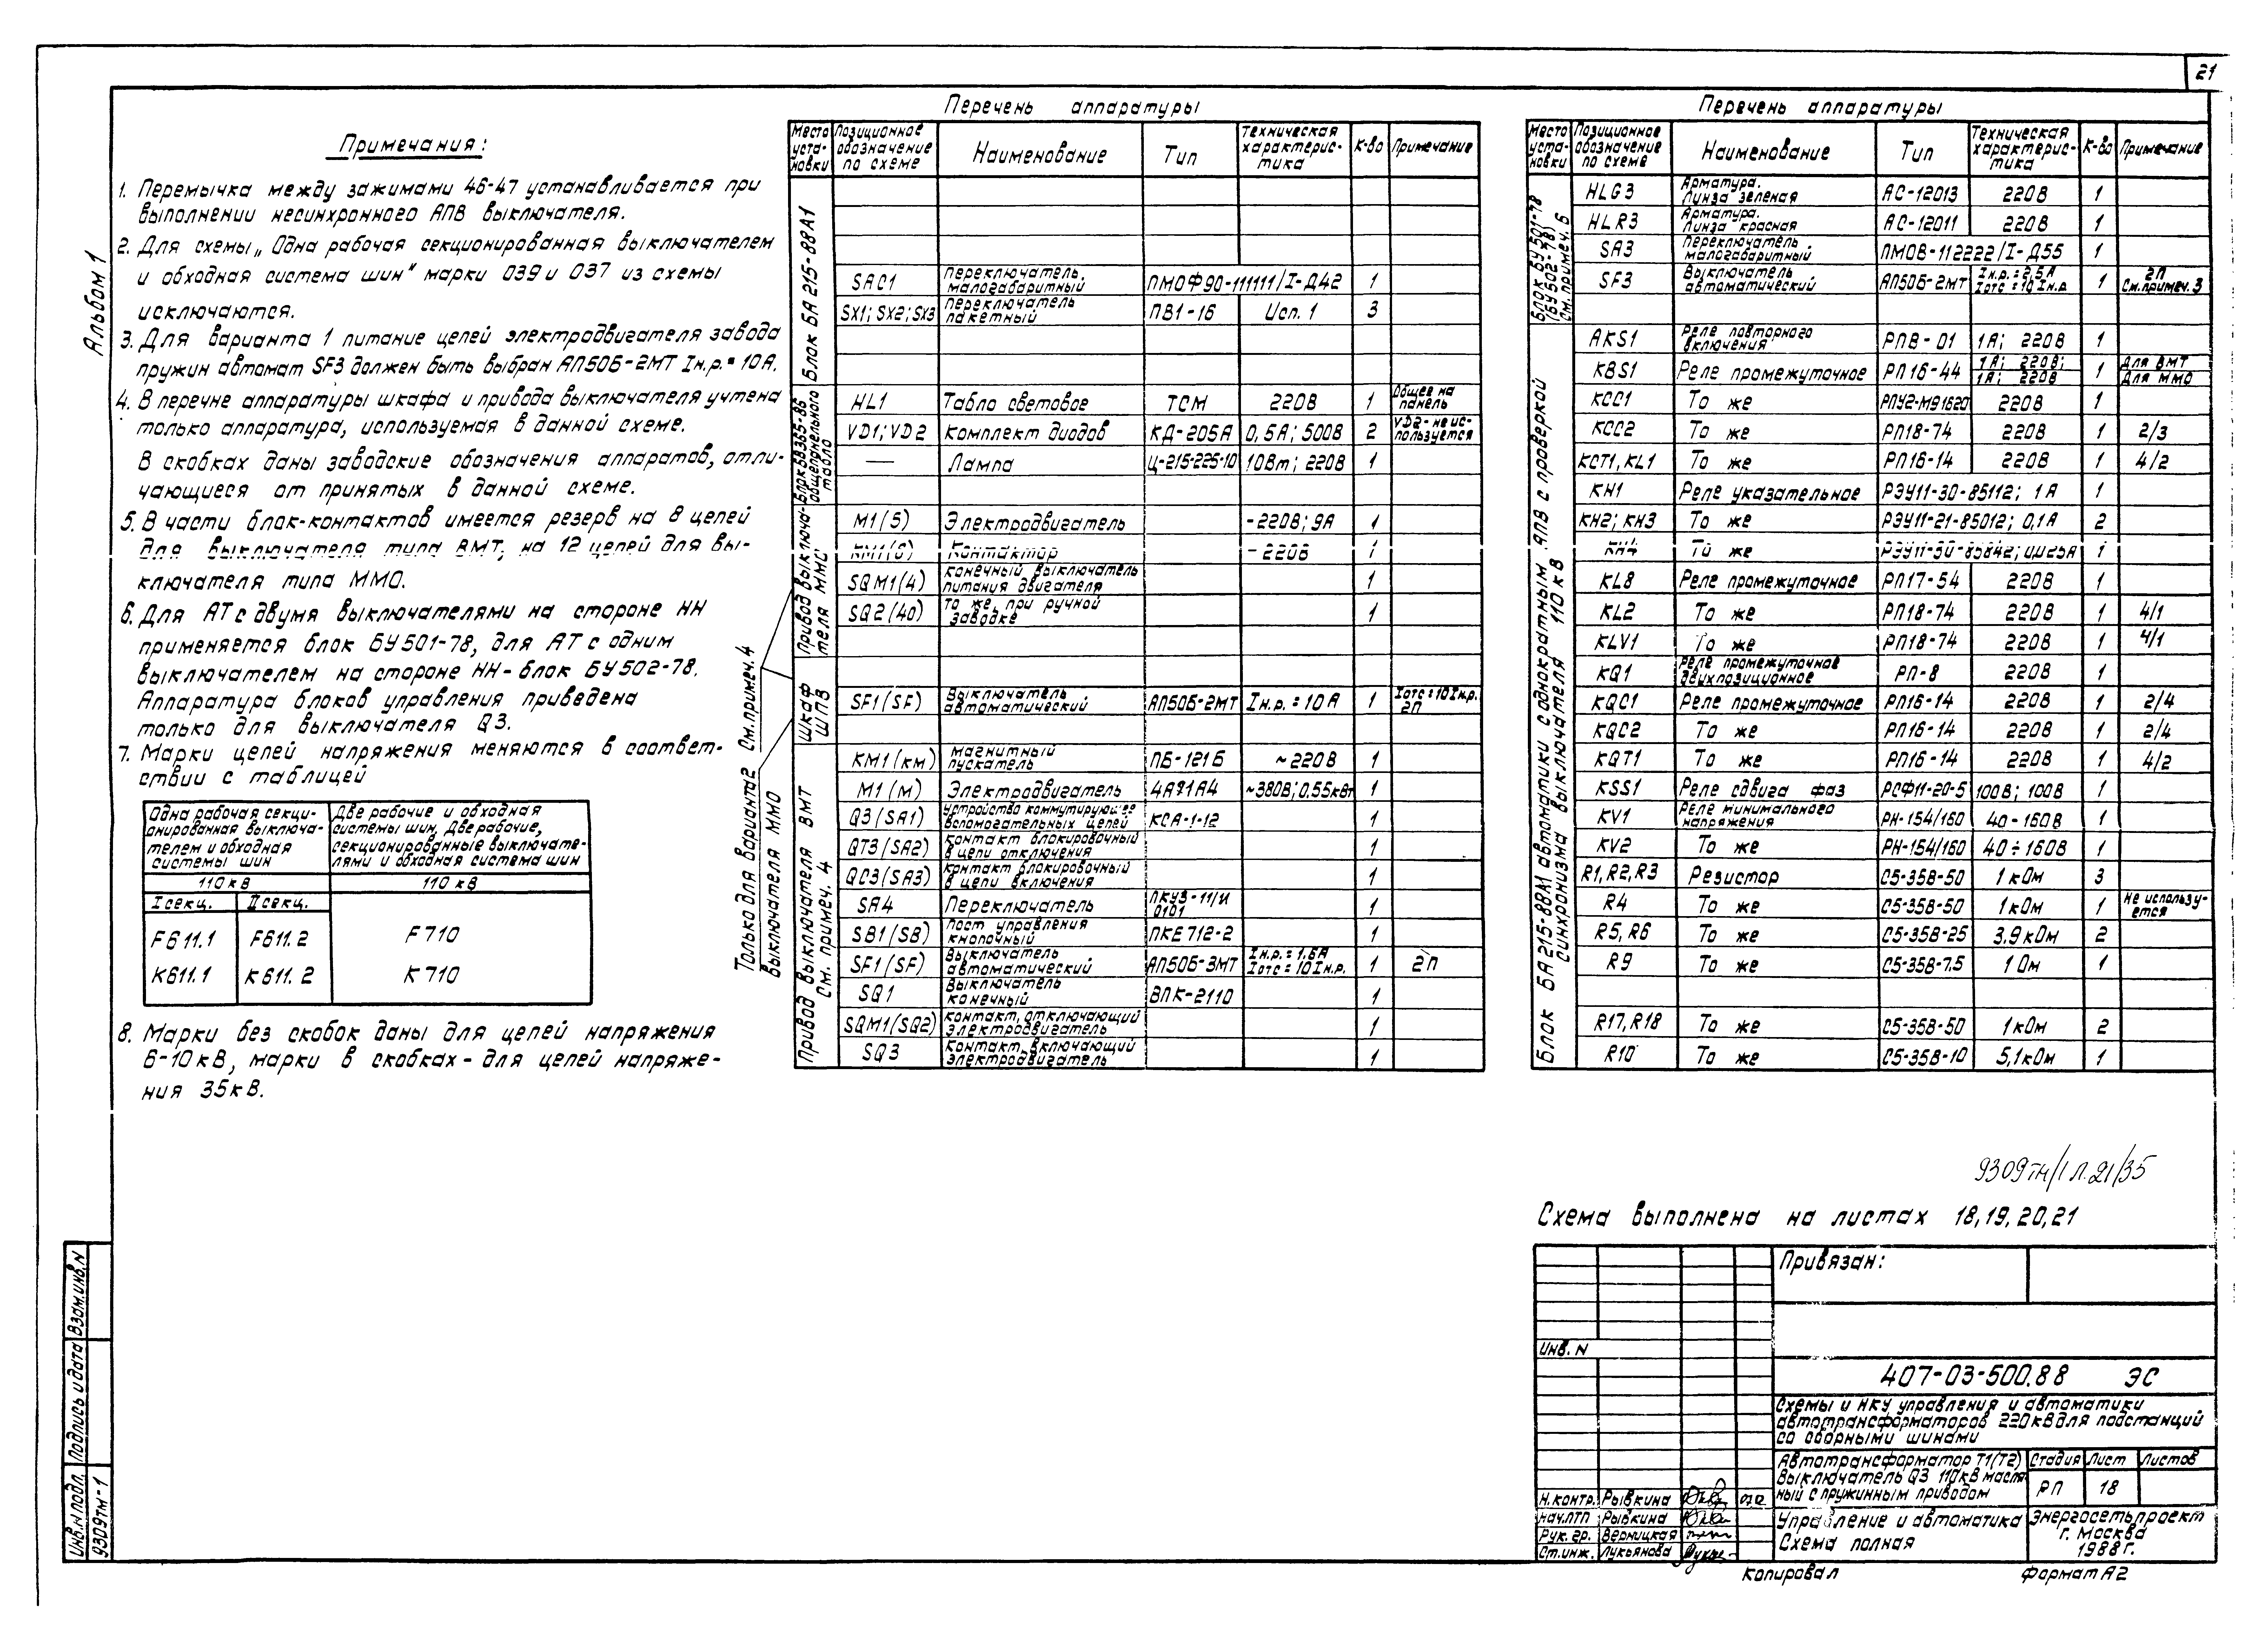 21
Альбом 1
Примечания:
1. Перемычка между зажимами 46-47 устанавливается при
выполнении несинхронного АПВ выключателя.
2. Для схемы „Одна рабочая секционированная выключателем
и обходная система шин" марки 039 и 037 из схемы
исключаются.
3. Для варианта 1 питание цепей электродвигателя завода
пружин автомат SF3 должен быть выбран АП50Б-2МТ Iн.р.=10А.
4. В перечне аппаратуры шкафа и привода выключателя учтена
только аппаратура, используемая в данной схеме.
В скобках даны заводские обозначения аппаратов, отли-
чающиеся от принятых в данной схеме.
5. В части блок-контактов имеется резерв на 8 цепей
для выключателя типа ВМТ, на 12 цепей для вы-
ключателя типа ММО.
6. Для АТ с двумя выключателями на стороне НН
применяется блок БУ501-78, для АТ с одним
выключателем на стороне НН-блок БУ502-78.
Аппаратура блоков управления приведена
только для выключателя Q3.
7. Марки цепей напряжения меняются в соответ-
ствии с таблицей
Одна рабочая секци-
онированная выключа-
телем и обходная
системы шин
Две рабочие и обходная
системы шин, Две рабочие,
секционированные выключате-
лями и обходная система шин
110кВ 110 кВ
I секц. II секц.
F611.1 F611.2 F710
K611.1 K611.2 K710
8. Марки без скобок даны для цепей напряжения
6-10кВ, марки в скобках-для цепей напряже-
ния 35кВ.
Перечень аппаратуры
Место уста-новки Позиционное обозначение по схеме Наименование Тип Техническая характерис-тика К-во Примечание
Блок БА 215-88А1
SAC1 Переключатель малогабаритный ПМОФ90-111111/I-Д42 1
SX1; SX2; SX3 Переключатель пакетный ПВ1-16 Исп. 1 3
общепанельного табло
HL1 Табло световое ТСМ 220В 1 Общее на панель
VD1; VD2 Комплект диодов КД-205А 0,5А; 500В 2 VD2-не ис-пользуется
— Лампа Ц-215-225-10 10Вт; 220В 1
Привод выключа-теля ММО
M1(5) Электродвигатель -220В; 9А 1
KM1(6) Контактор -220В 1
SQM1(4) Конечный выключатель питания двигателя 1
SQ2(40) То же, при ручной заводке 1
Шкаф ШПВ
SF1(SF) Выключатель автоматический АП50Б-2МТ Iн.р.=10А 1 Iотс=10Iн.р. 2П
Только для варианта 2 См.примеч.4
выключателя ММО
Привод выключателя ВМТ
См. примеч. 4
KM1(КМ) Магнитный пускатель ПБ-121Б ~220В 1
M1(М) Электродвигатель 4АА71А4 ~380В; 0.55кВт 1
Q3(SA1) Устройство коммутирующее вспомогательных цепей КСА-1-12 1
QT3(SA2) Контакт блокировочный в цепи отключения 1
QC3(SA3) Контакт блокировочный в цепи включения 1
SA4 Переключатель ПКУ3-11/И 0101 1
SB1(SB) Пост управления кнопочный ПКЕ 712-2 1
SF1(SF) Выключатель автоматический АП50Б-3МТ Iн.р.=1,6А Iотс=10Iн.р. 1 2П
SQ1 Выключатель конечный ВПК-2110 1
SQM1(SQ2) Контакт, отключающий электродвигатель 1
SQ3 Контакт, включающий электродвигатель 1
Перечень аппаратуры
Место уста-новки Позиционное обозначение по схеме Наименование Тип Техническая характерис-тика К-во Примечание
Блок БУ501-78
(БУ502-78)
см.примеч. 6
HLG3 Арматура. Линза зеленая АС-12013 220В 1
HLR3 Арматура. Линза красная АС-12011 220В 1
SA3 Переключатель малогабаритный ПМОВ-112222/I-Д55 1
SF3 Выключатель автоматический АП50Б-2МТ Iн.р.=2,5А Iотс=10Iн.р 1 2П См.примеч.3
Блок БА215-88М автоматики с однократным АПВ с проверкой
синхронизма выключателя 110кВ
AKS1 Реле повторного включения РПВ-01 1А; 220В 1
KBS1 Реле промежуточное РП16-44 1А; 220В; 1А; 220В 1 Для ВМТ Для ММО
KCC1 То же РПУ2-М91620 220В 1
KCC2 То же РП18-74 220В 1 2/3
KCT1, KL1 То же РП16-14 220В 1 4/2
KH1 Реле указательное РЭУ11-30-85112; 1А 1
KH2; KH3 То же РЭУ11-21-85012; 0,1А 2
KH4 То же 1
KL8 Реле промежуточное РП17-54 220В 1
KL2 То же РП18-74 220В 1 4/1
KLV1 То же РП18-74 220В 1 4/1
KQ1 Реле промежуточное двухпозиционное РП-8 220В 1
KQC1 Реле промежуточное РП16-14 220В 1 2/4
KQC2 То же РП16-14 220В 1 2/4
KQT1 То же РП16-14 220В 1 4/2
KSS1 Реле сдвига фаз РСФ11-20-5 100В; 100В 1
KV1 Реле минимального напряжения РН-154/160 40-160В 1
KV2 То же РН-154/160 40÷160В 1
R1, R2, R3 Резистор С5-35В-50 1кОм 3
R4 То же С5-35В-50 1кОм 1 Не использу-ется
R5, R6 То же С5-35В-25 3.9кОм 2
R9 То же С5-35В-7.5 1 Ом 1
R17, R18 То же С5-35В-50 1кОм 2
R10 То же С5-35В-10 5,1кОм 1
9309тм/1 л.21/35
Схема выполнена на листах 18,19,20,21
Привязан:
Инв. N
407-03-500.88 ЭС
Схемы и НКУ управления и автоматики
автотрансформаторов 220кВ для подстанций
со сборными шинами
Автотрансформатор Т1(Т2)
Выключатель Q3 110кВ масля-
ный с пружинным приводом
Стадия Лист Листов
РП 18
Управление и автоматика
Схема полная
Энергосетьпроект
г. Москва
1988г.
Н.контр. Рывкина
Нач.ПТП Рывкина
Рук. гр. Верницкая
Ст.инж. Лукьянова
Копировал Формат А2
Взам.инв.N
Подпись и дата
Инв.N подл.
9309тм-1